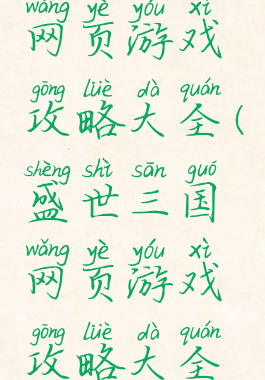 wǎng yè yóu xì
网页游戏
gōng lüè dà quán
攻略大全(
shèng shì sān guó
盛世三国
wǎng yè yóu xì
网页游戏
gōng lüè dà quán
攻略大全